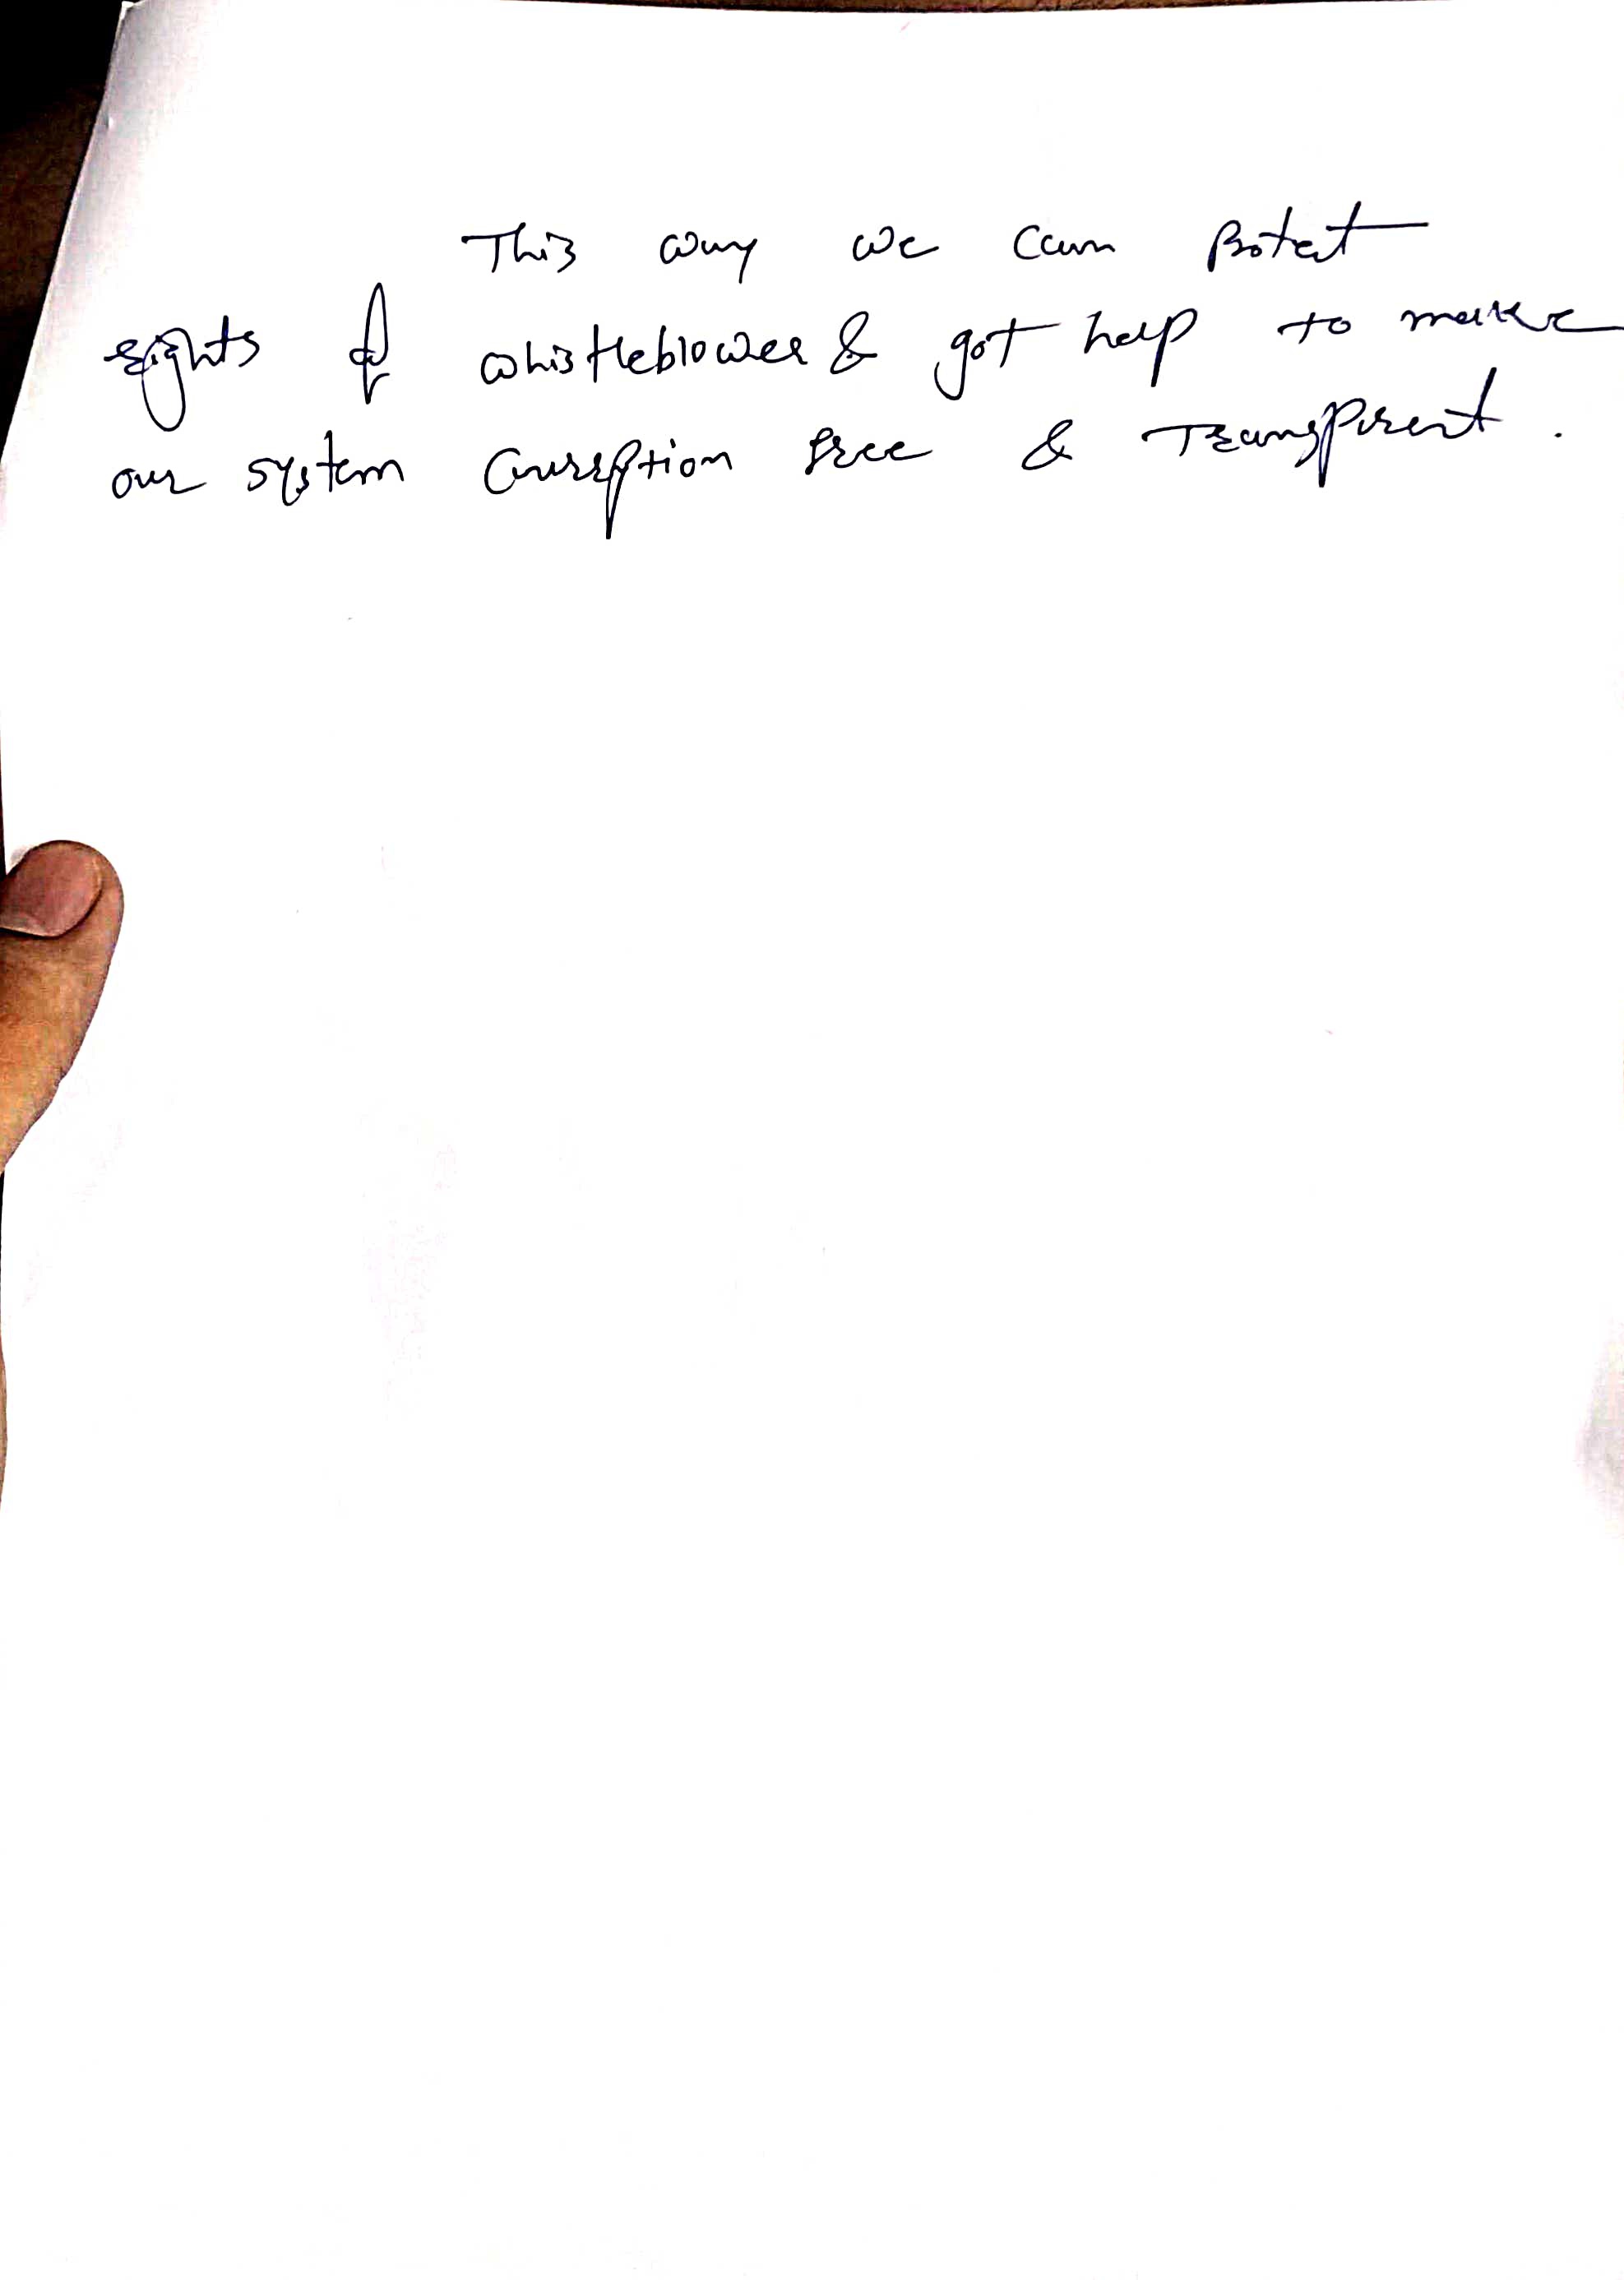 This way we can Protect
rights of whistleblower & got help to make
our system Curreption free & Transpirent.